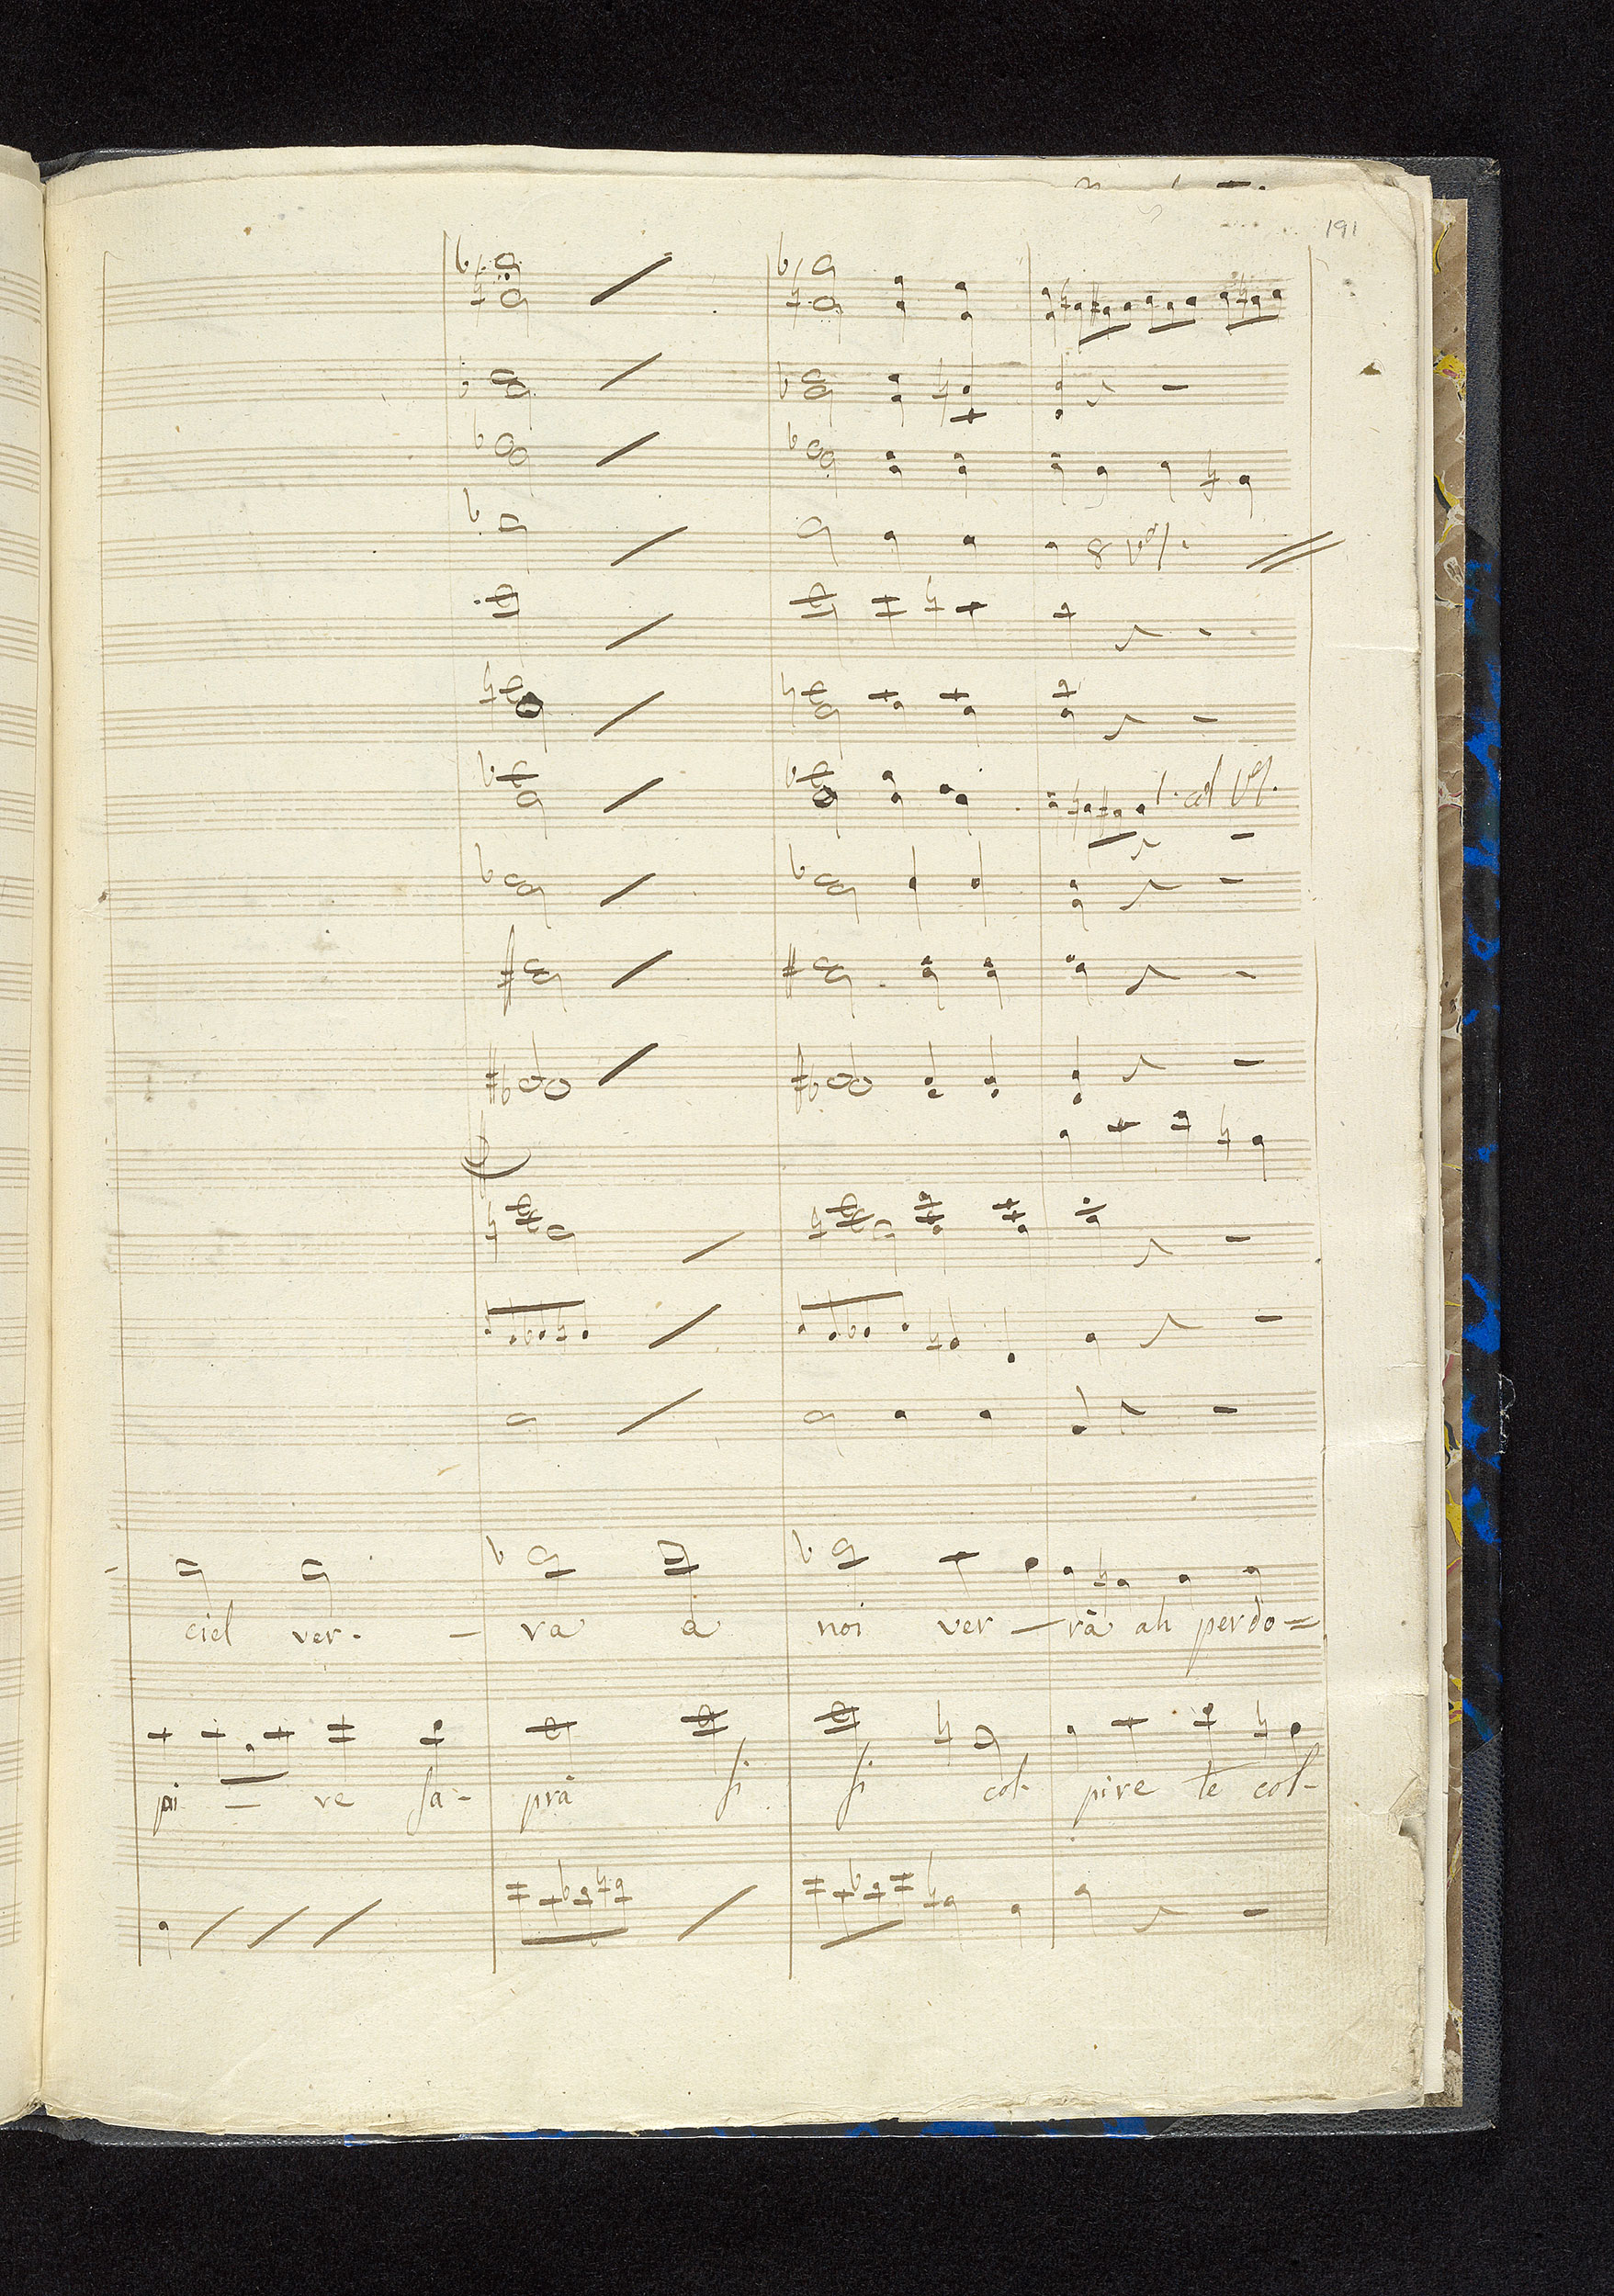 191
8 Vni
col Vni
ciel ver - ra a noi ver - rà ah perdo=
pi - re sa- prà si si col- pire te col-